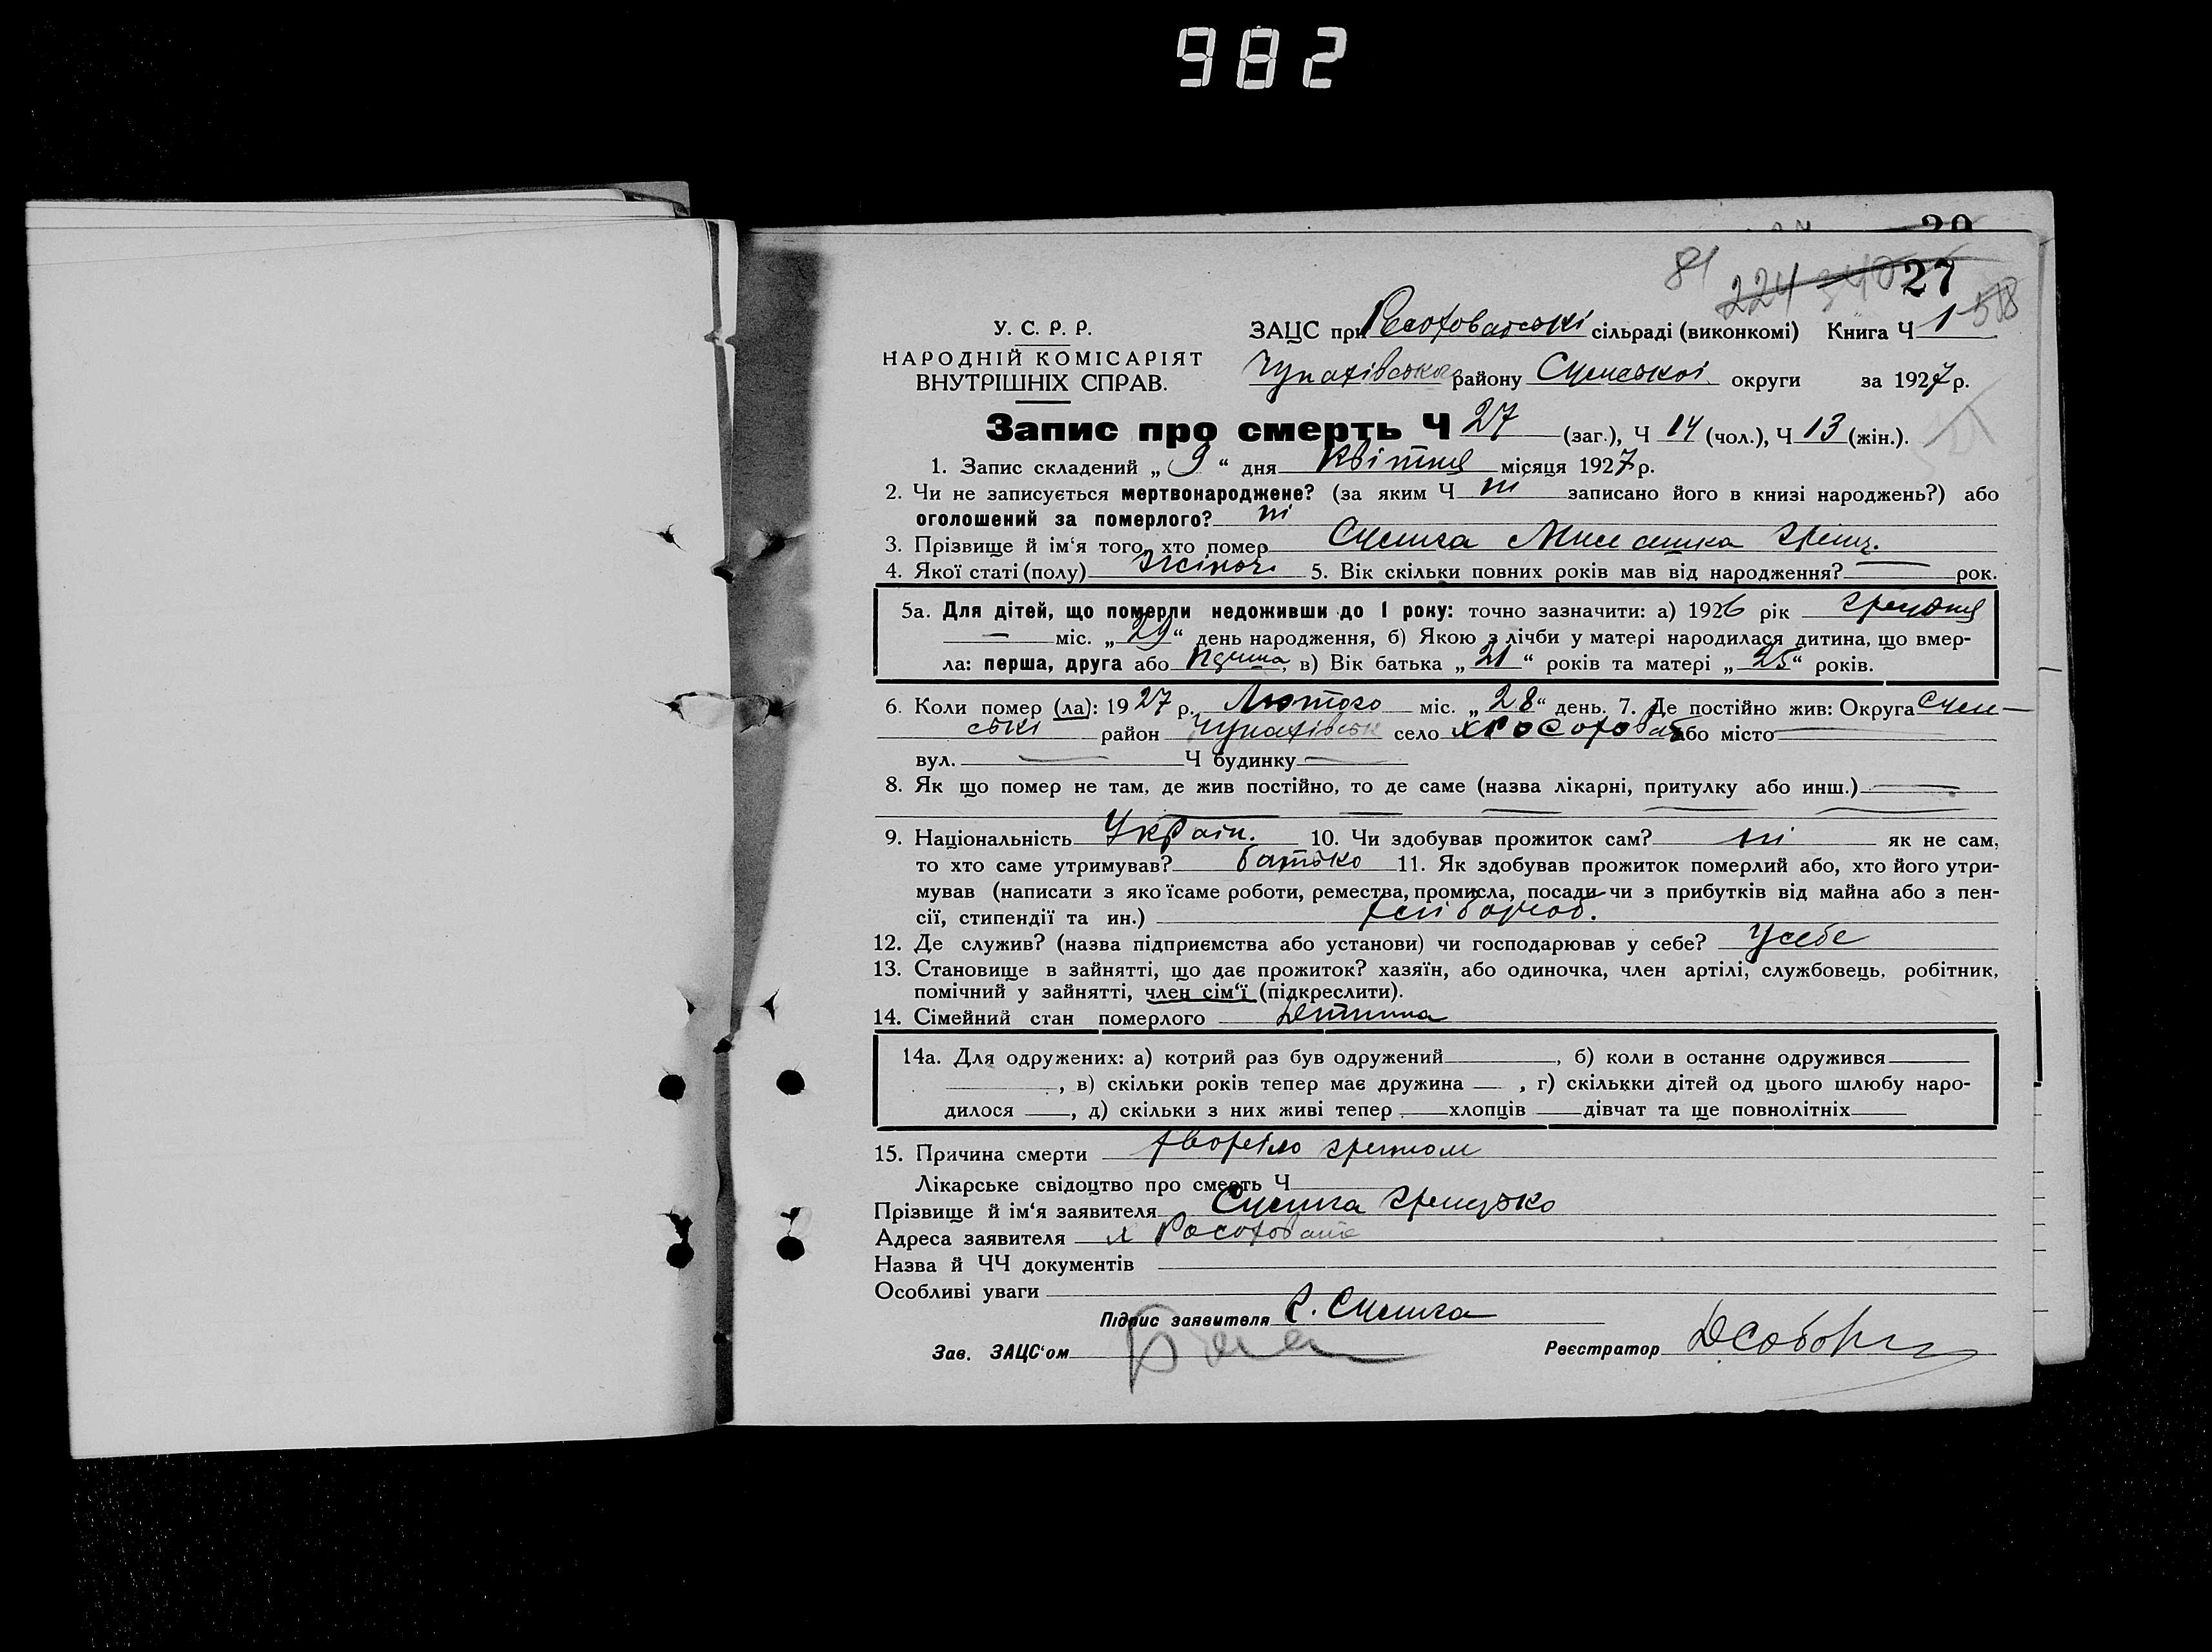 982
20
81 224 340 27 518
У. С. Р. Р.
НАРОДНІЙ КОМІСАРІЯТ
ВНУТРІШНІХ СПРАВ.
ЗАЦС при сільраді (виконкомі) Книга Ч 1
Чупахівського району Сумської округи за 1927 р.
Запис про смерть Ч 27 (заг.), Ч 14 (чол.), Ч 13 (жін.).
1. Запис складений „ 9 “ дня Квітня місяця 1927 р.
2. Чи не записується мертвонароджене? (за яким Ч ні записано його в книзі народжень?) або
оголошений за померлого? ні
3. Прізвище й ім'я того, хто помер
4. Якої статі (полу) Жіноч. 5. Вік скільки повних років мав від народження? — рок.
5а. Для дітей, що померли недоживши до 1 року: точно зазначити: а) 1926 рік грудня
— міс. „ 29 “ день народження, б) Якою з лічби у матері народилася дитина, що вмер-
ла: перша, друга або , в) Вік батька „ 21 “ років та матері „ 25 “ років.
6. Коли помер (ла): 1927 р. Лютого міс. „ 28 “ день. 7. Де постійно жив: Округа Сум-
ські район Чупахівськ село х Росоховат або місто —
вул. — Ч будинку —
8. Як що помер не там, де жив постійно, то де саме (назва лікарні, притулку або инш.) —
9. Національність Україн. 10. Чи здобував прожиток сам? ні як не сам,
то хто саме утримував? батько 11. Як здобував прожиток померлий або, хто його утри-
мував (написати з якоїсаме роботи, ремества, промисла, посади чи з прибутків від майна або з пен-
сії, стипендії та ин.) хлібороб.
12. Де служив? (назва підприємства або установи) чи господарював у себе? У себе
13. Становище в зайнятті, що дає прожиток? хазяїн, або одиночка, член артілі, службовець, робітник,
помічний у зайнятті, член сім‘ї (підкреслити).
14. Сімейний стан померлого Дитина
14а. Для одружених: а) котрий раз був одружений , б) коли в останнє одружився
, в) скільки років тепер має дружина , г) скількки дітей од цього шлюбу наро-
дилося , д) скільки з них живі тепер хлопців дівчат та ще повнолітніх
15. Причина смерти хворіло
Лікарське свідоцтво про смерть Ч
Прізвище й ім‘я заявителя
Адреса заявителя х Росоховате
Назва й ЧЧ документів
Особливі уваги
Підпис заявителя
Зав. ЗАЦС‘ом
Реєстратор